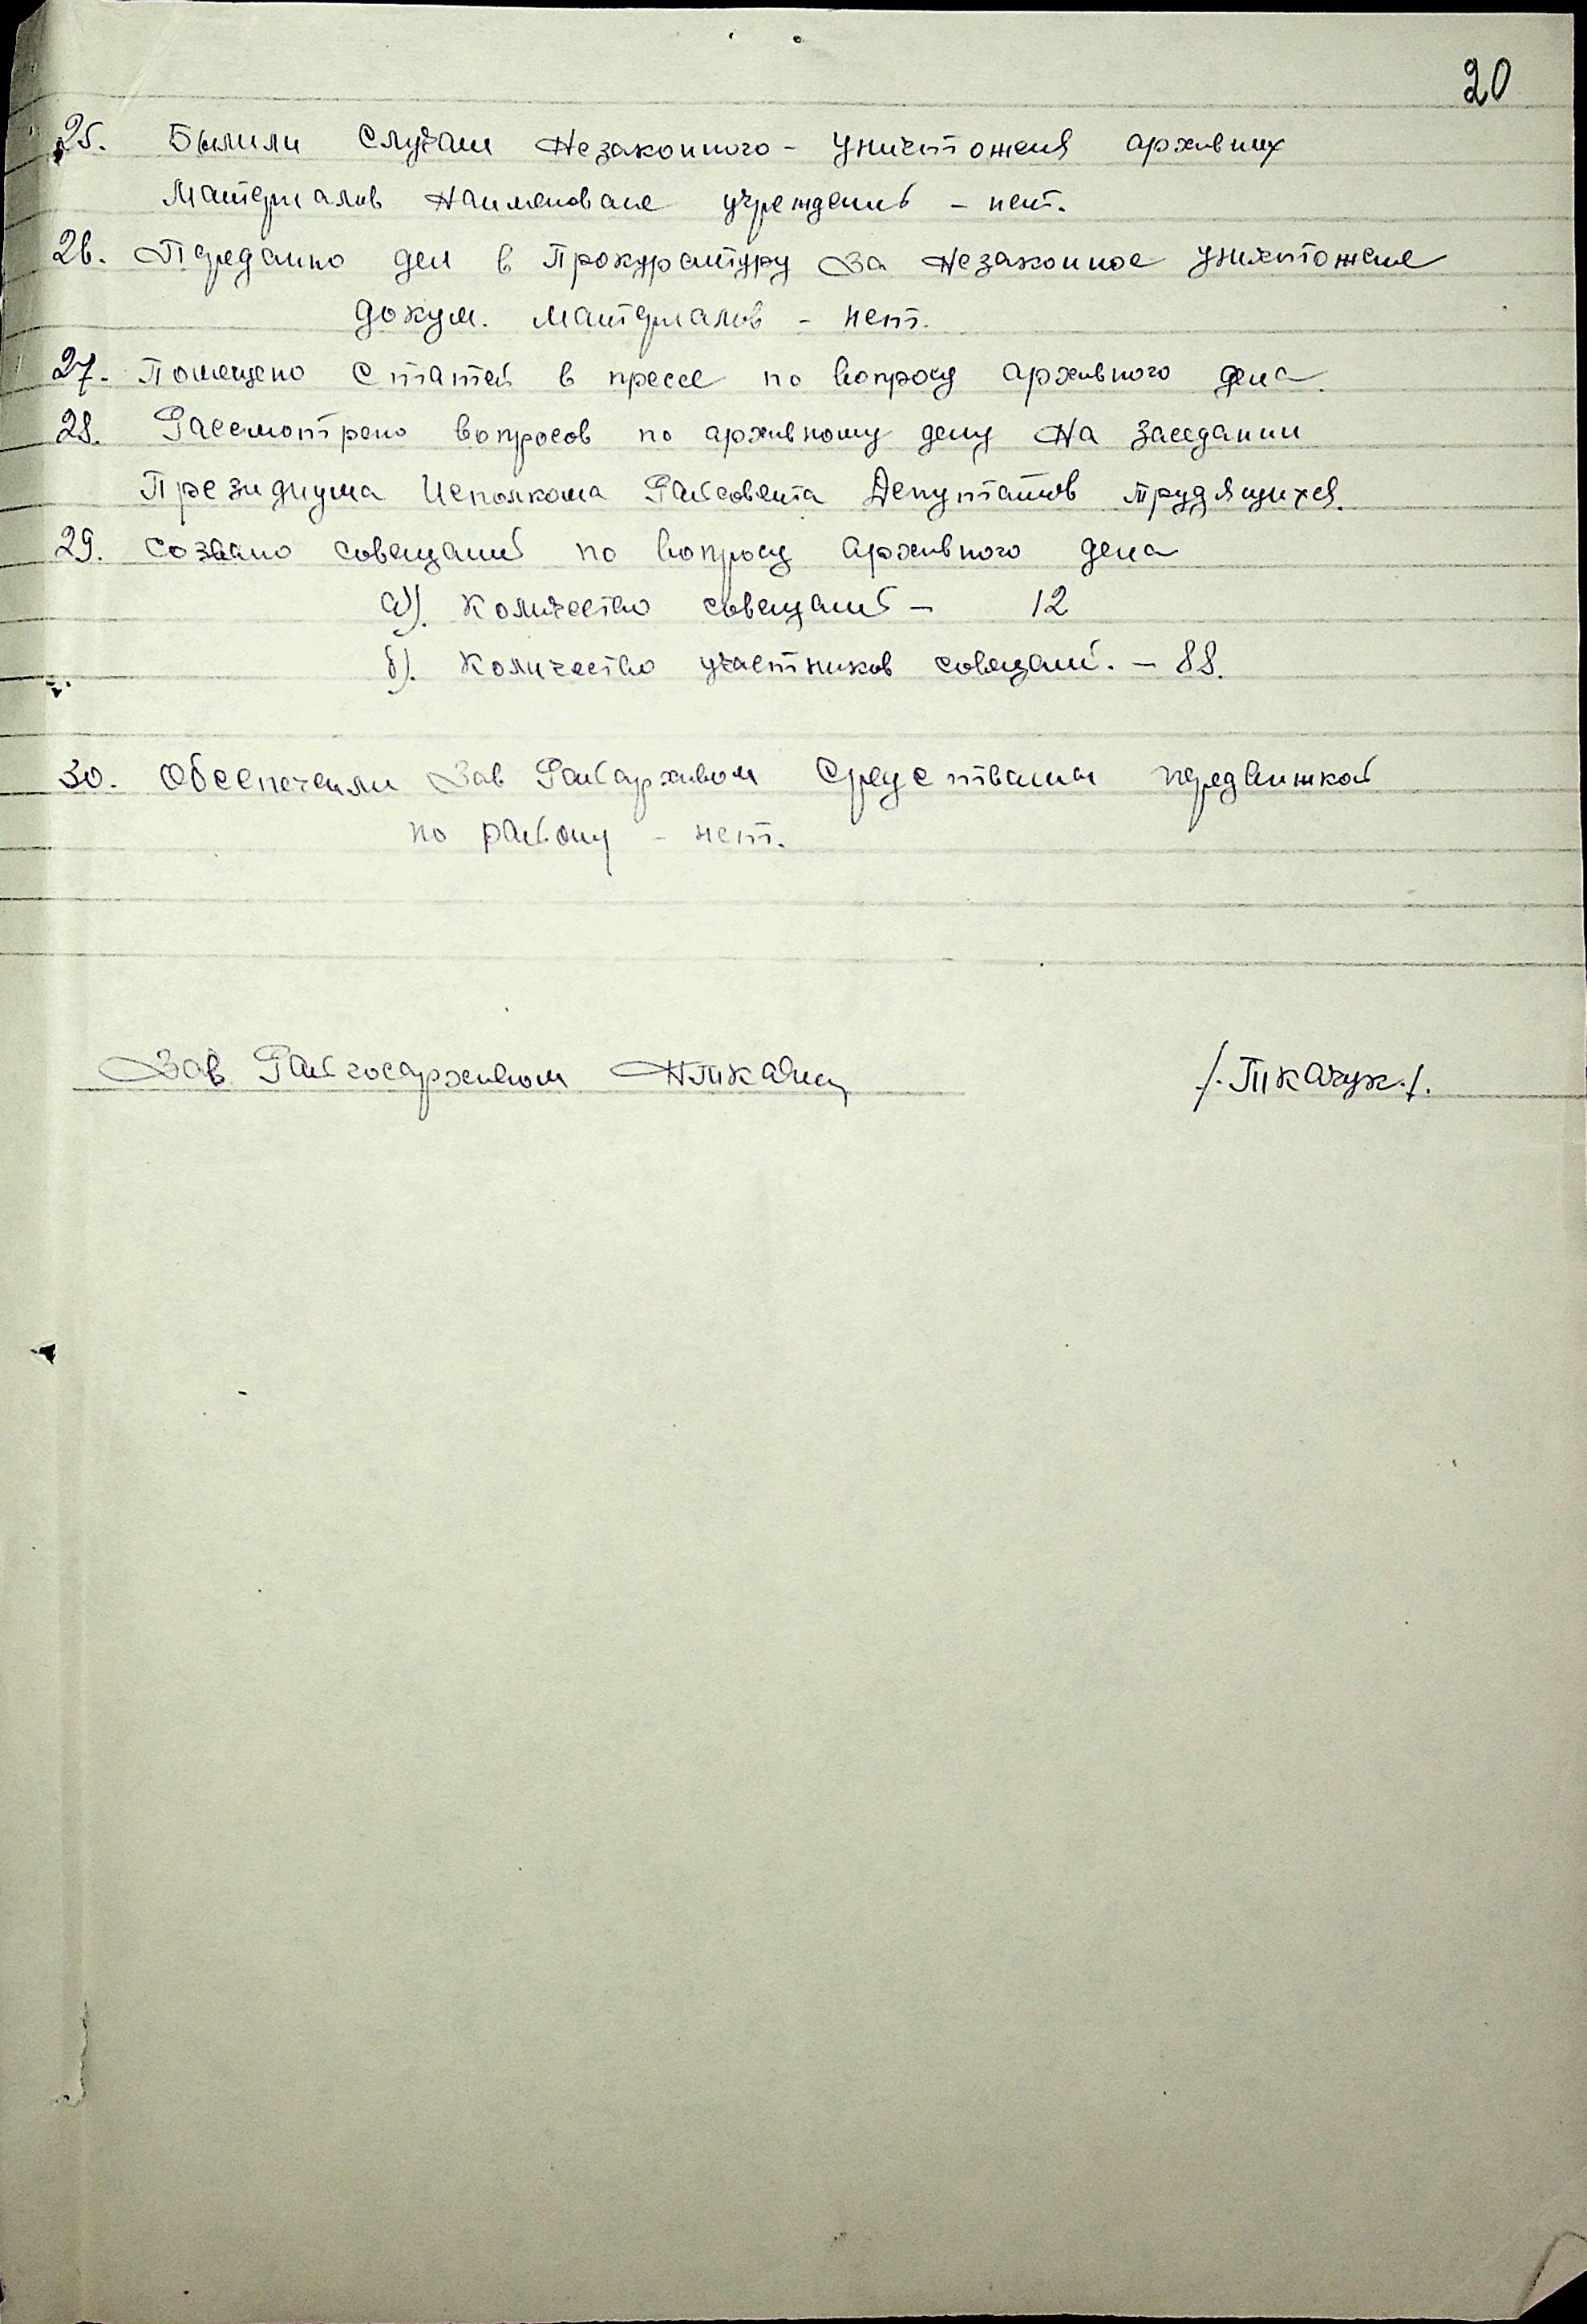 20
25. Былили случаи Незаконного - уничтоженя архивних
Материалов Наименоване учреждений - нет.
26. Переданно дел в Прокурантуру За Незаконное уничтожене
докум. материалов - нет.
27. Помещено Статей в прессе по вопросу архивного дела.
28. Рассмотрено вопросов по архивному делу На заседании
Президиума Исполкома Райсовента Депутатов трудящихся.
29. Созвано совещаний по вопросу архивного дела
а). Количество совещаний - 12
б). Количество участников совещаний. - 88.
30. Обеспеченли Зав Райархивом Средствамы передвижкой
по району - нет.
Зав Райгосархивом НТкачук /.Ткачук./.